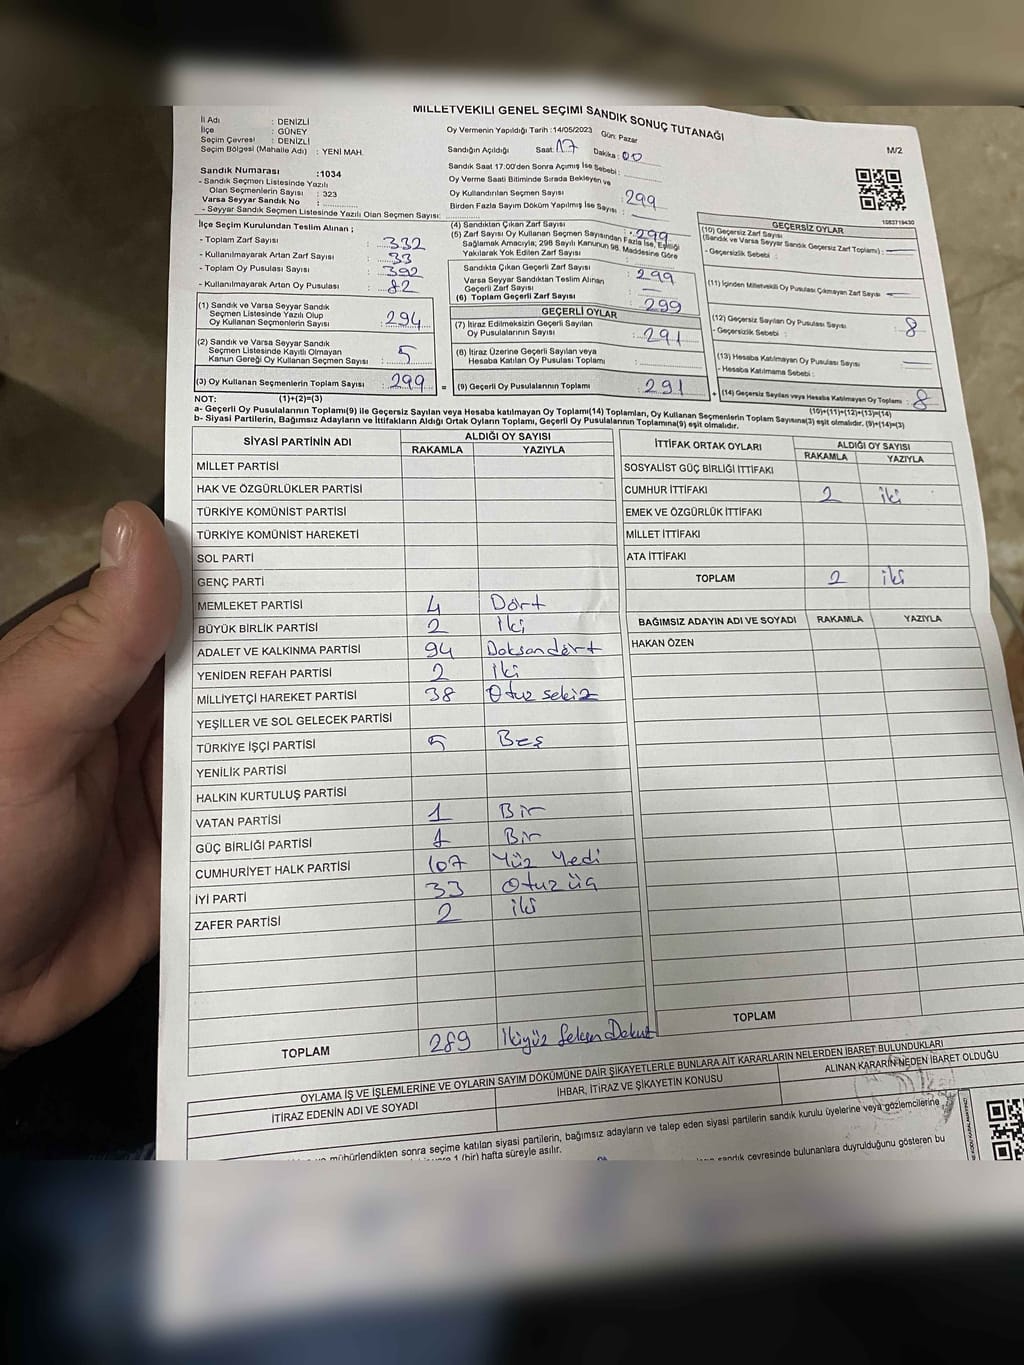 MİLLETVEKİLİ GENEL SEÇİMİ SANDIK SONUÇ TUTANAĞI
İl Adı : DENİZLİ
İlçe : GÜNEY
Seçim Çevresi : DENİZLİ
Seçim Bölgesi (Mahalle Adı) : YENİ MAH.
Oy Vermenin Yapıldığı Tarih :14/05/2023 Gün: Pazar
Sandığın Açıldığı Saat: 17 Dakika : 00
M/2
Sandık Saat 17:00'den Sonra Açımış İse Sebebi :
Oy Verme Saati Bitiminde Sırada Bekleyen ve
Oy Kullandırılan Seçmen Sayısı : 299
Birden Fazla Sayım Döküm Yapılmış İse Sayısı :
Sandık Numarası :1034
- Sandık Seçmen Listesinde Yazılı
Olan Seçmenlerin Sayısı : 323
Varsa Seyyar Sandık No :
- Seyyar Sandık Seçmen Listesinde Yazılı Olan Seçmen Sayısı:
1083719430
İlçe Seçim Kurulundan Teslim Alınan ;
- Toplam Zarf Sayısı : 332
- Kullanılmayarak Artan Zarf Sayısı : 33
- Toplam Oy Pusulası Sayısı : 392
- Kullanılmayarak Artan Oy Pusulası : 82
(1) Sandık ve Varsa Seyyar Sandık
Seçmen Listesinde Yazılı Olup
Oy Kullanan Seçmenlerin Sayısı : 294
(2) Sandık ve Varsa Seyyar Sandık
Seçmen Listesinde Kayıtlı Olmayan
Kanun Gereği Oy Kullanan Seçmen Sayısı : 5
(3) Oy Kullanan Seçmenlerin Toplam Sayısı : 299
(4) Sandıktan Çıkan Zarf Sayısı : 299
(5) Zarf Sayısı Oy Kullanan Seçmen Sayısından Fazla İse, Eşitliği
Sağlamak Amacıyla; 298 Sayılı Kanunun 98. Maddesine Göre
Yakılarak Yok Edilen Zarf Sayısı
Sandıkta Çıkan Geçerli Zarf Sayısı : 299
Varsa Seyyar Sandıktan Teslim Alınan
Geçerli Zarf Sayısı :
(6) Toplam Geçerli Zarf Sayısı 299
GEÇERLİ OYLAR
(7) İtiraz Edilmeksizin Geçerli Sayılan
Oy Pusulalarının Sayısı : 291
(8) İtiraz Üzerine Geçerli Sayılan veya
Hesaba Katılan Oy Pusulası Toplamı :
= (9) Geçerli Oy Pusulalarının Toplamı : 291
GEÇERSİZ OYLAR
(10) Geçersiz Zarf Sayısı
(Sandık ve Varsa Seyyar Sandık Geçersiz Zarf Toplamı) :
- Geçersizlik Sebebi :
(11) İçinden Milletvekili Oy Pusulası Çıkmayan Zarf Sayısı
(12) Geçersiz Sayılan Oy Pusulası Sayısı : 8
- Geçersizlik Sebebi :
(13) Hesaba Katılmayan Oy Pusulası Sayısı
- Hesaba Katılmama Sebebi :
+ (14) Geçersiz Sayılan veya Hesaba Katılmayan Oy Toplamı : 8
NOT: (1)+(2)=(3) (10)+(11)+(12)+(13)=(14)
a- Geçerli Oy Pusulalarının Toplamı(9) ile Geçersiz Sayılan veya Hesaba katılmayan Oy Toplamı(14) Toplamları, Oy Kullanan Seçmenlerin Toplam Sayısına(3) eşit olmalıdır. (9)+(14)=(3)
b- Siyasi Partilerin, Bağımsız Adayların ve İttifakların Aldığı Ortak Oyların Toplamı, Geçerli Oy Pusulalarının Toplamına(9) eşit olmalıdır.
SİYASİ PARTİNİN ADI ALDIĞI OY SAYISI
RAKAMLA YAZIYLA
MİLLET PARTİSİ
HAK VE ÖZGÜRLÜKLER PARTİSİ
TÜRKİYE KOMÜNİST PARTİSİ
TÜRKİYE KOMÜNİST HAREKETİ
SOL PARTİ
GENÇ PARTİ
MEMLEKET PARTİSİ 4 Dört
BÜYÜK BİRLİK PARTİSİ 2 İki
ADALET VE KALKINMA PARTİSİ 94 Doksandört
YENİDEN REFAH PARTİSİ 2 İki
MİLLİYETÇİ HAREKET PARTİSİ 38 Otuz sekiz
YEŞİLLER VE SOL GELECEK PARTİSİ
TÜRKİYE İŞÇİ PARTİSİ 5 Beş
YENİLİK PARTİSİ
HALKIN KURTULUŞ PARTİSİ
VATAN PARTİSİ 1 Bir
GÜÇ BİRLİĞİ PARTİSİ 1 Bir
CUMHURİYET HALK PARTİSİ 107 Yüz Yedi
İYİ PARTİ 33 Otuz üç
ZAFER PARTİSİ 2 iki
TOPLAM 289 İkiyüz Seksen Dokuz
İTTİFAK ORTAK OYLARI ALDIĞI OY SAYISI
RAKAMLA YAZIYLA
SOSYALİST GÜÇ BİRLİĞİ İTTİFAKI
CUMHUR İTTİFAKI 2 iki
EMEK VE ÖZGÜRLÜK İTTİFAKI
MİLLET İTTİFAKI
ATA İTTİFAKI
TOPLAM 2 iki
BAĞIMSIZ ADAYIN ADI VE SOYADI RAKAMLA YAZIYLA
HAKAN ÖZEN
TOPLAM
OYLAMA İŞ VE İŞLEMLERİNE VE OYLARIN SAYIM DÖKÜMÜNE DAİR ŞİKAYETLERLE BUNLARA AİT KARARLARIN NELERDEN İBARET BULUNDUKLARI
İTİRAZ EDENİN ADI VE SOYADI İHBAR, İTİRAZ VE ŞİKAYETİN KONUSU ALINAN KARARIN NEDEN İBARET OLDUĞU
mühürlendikten sonra seçime katılan siyasi partilerin, bağımsız adayların ve talep eden siyasi partilerin sandık kurulu üyelerine veya gözlemcilerine
1 (bir) hafta süreyle asılır.
sandık çevresinde bulunanlara duyrulduğunu gösteren bu